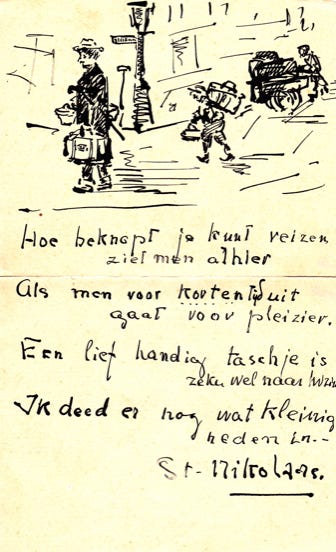 Hoe beknopt je kunt reizen
ziet men alhier
Als men voor korten tijd uit
gaat voor pleizier.
Een lief handig taschje is
zeker wel naar
Ik deed er nog wat kleinig
heden in.-
St. Nikolaas.